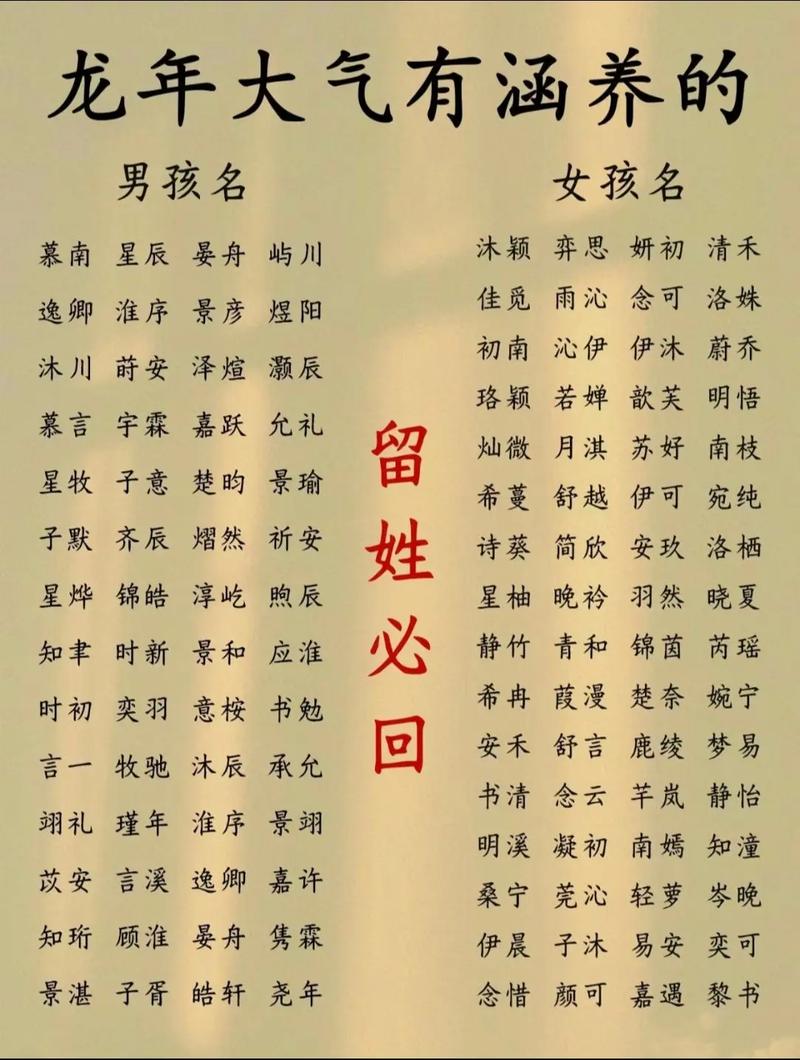 龙年大气有涵养的
男孩名
慕南 星辰 晏舟 屿川
逸卿 淮序 景彦 煜阳
沐川 莳安 泽煊 灏辰
慕言 宇霖 嘉跃 允礼
星牧 子意 楚昀 景瑜
子默 齐辰 熠然 祈安
星烨 锦皓 淳屹 煦辰
知聿 时新 景和 应淮
时初 奕羽 意桉 书勉
言一 牧驰 沐辰 承允
翊礼 瑾年 淮序 景翊
苡安 言溪 逸卿 嘉许
知珩 顾淮 晏舟 隽霖
景湛 子胥 皓轩 尧年
留姓必回
女孩名
沐颖 弈思 妍初 清禾
佳觅 雨沁 念可 洛姝
初南 沁伊 伊沐 蔚乔
珞颖 若婵 歆芙 明悟
灿微 月淇 苏好 南枝
希蔓 舒越 伊可 宛纯
诗葵 简欣 安玖 洛栖
星柚 晚衿 羽然 晓夏
静竹 青和 锦茵 芮瑶
希冉 葭漫 楚奈 婉宁
安禾 舒言 鹿绫 梦易
书清 念云 芊岚 静怡
明溪 凝初 南嫣 知潼
桑宁 莞沁 轻萝 岑晚
伊晨 子沐 易安 奕可
念惜 颜可 嘉遇 黎书